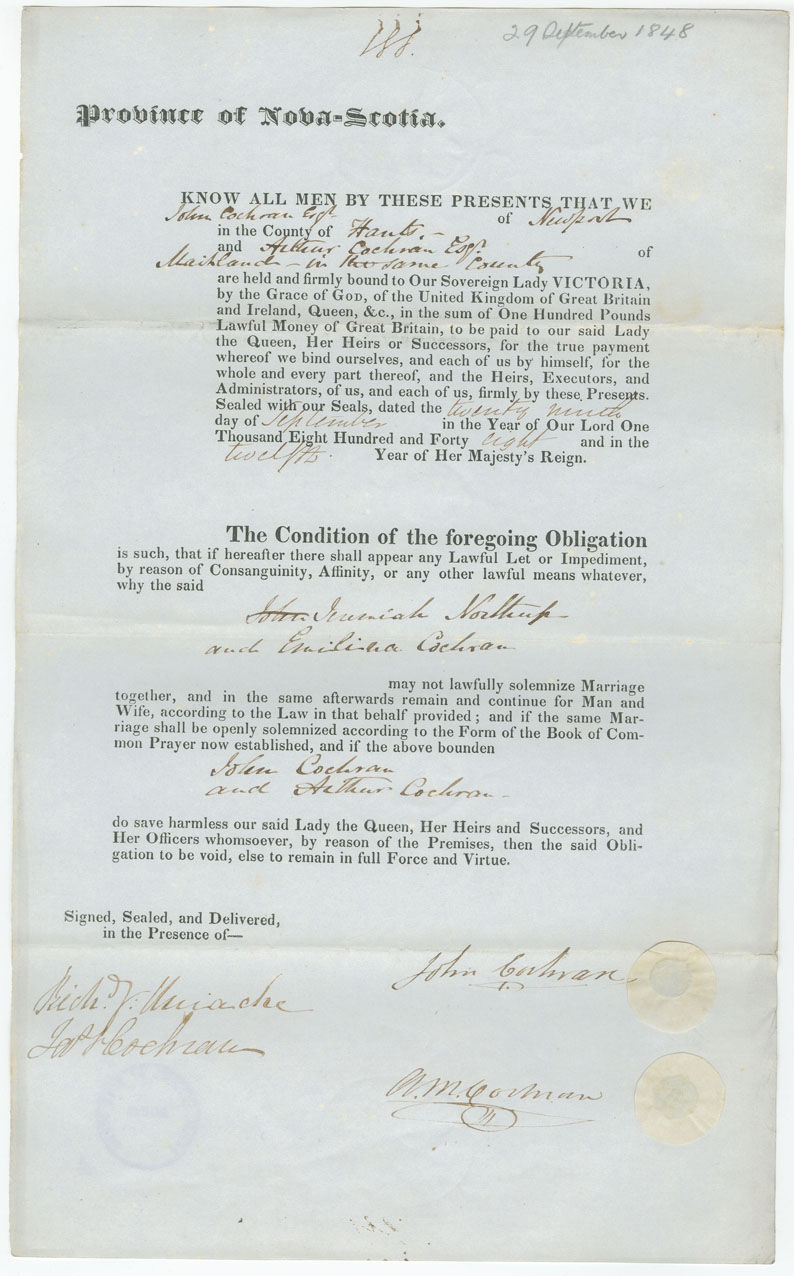 188.
29 September 1848
Province of Nova-Scotia.
KNOW ALL MEN BY THESE PRESENTS THAT WE
John Cochran Esqr. of Newport
in the County of Hants.-
and Arthur Cochran Esqr. of
Maitland - in the same County
are held and firmly bound to Our Sovereign Lady VICTORIA,
by the Grace of GOD, of the United Kingdom of Great Britain
and Ireland, Queen, &c., in the sum of One Hundred Pounds
Lawful Money of Great Britain, to be paid to our said Lady
the Queen, Her Heirs or Successors, for the true payment
whereof we bind ourselves, and each of us by himself, for the
whole and every part thereof, and the Heirs, Executors, and
Administrators, of us, and each of us, firmly by these Presents.
Sealed with our Seals, dated the twenty ninth
day of September in the Year of Our Lord One
Thousand Eight Hundred and Forty eight and in the
twelfth. Year of Her Majesty's Reign.
The Condition of the foregoing Obligation
is such, that if hereafter there shall appear any Lawful Let or Impediment,
by reason of Consanguinity, Affinity, or any other lawful means whatever,
why the said
John Jeremiah Northup
and Emiliena Cochran
may not lawfully solemnize Marriage
together, and in the same afterwards remain and continue for Man and
Wife, according to the Law in that behalf provided ; and if the same Mar-
riage shall be openly solemnized according to the Form of the Book of Com-
mon Prayer now established, and if the above bounden
John Cochran
and Arthur Cochran -
do save harmless our said Lady the Queen, Her Heirs and Successors, and
Her Officers whomsoever, by reason of the Premises, then the said Obli-
gation to be void, else to remain in full Force and Virtue.
Signed, Sealed, and Delivered,
in the Presence of—
John Cochran
Richd. J. Uniacke
Cochran
A. M. Cochran